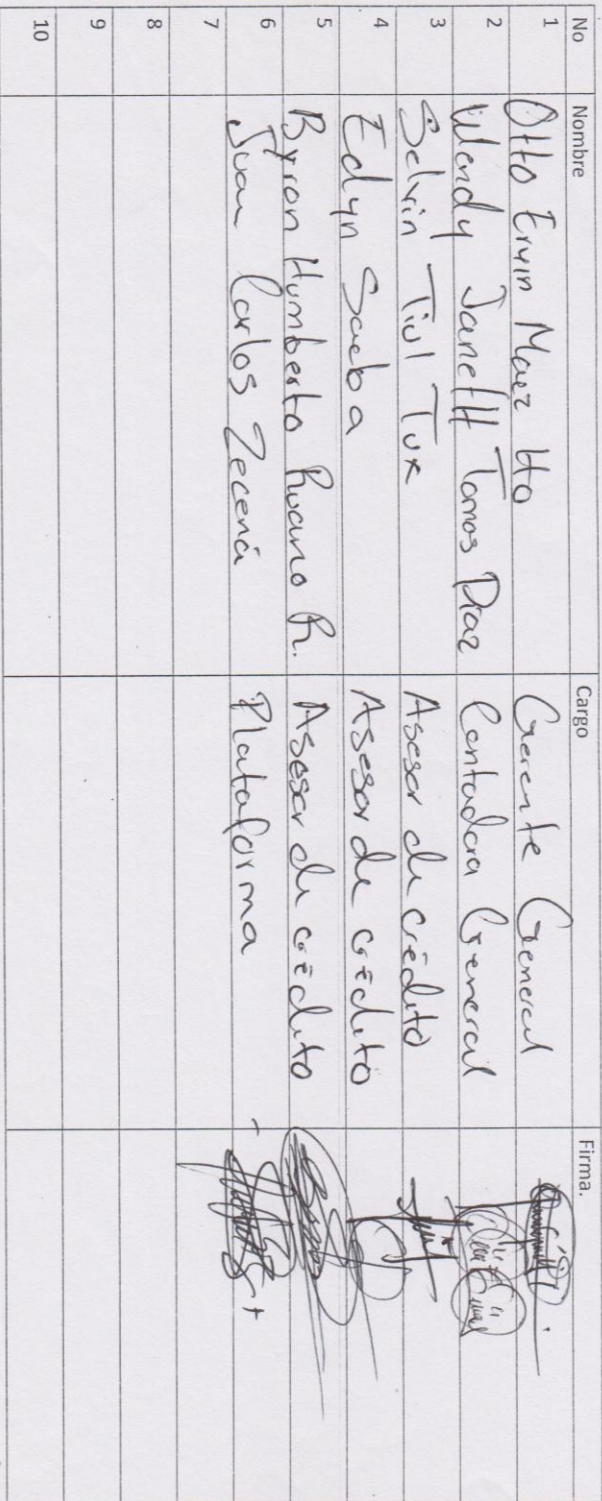 No Nombre Cargo Firma.
1 Otto Erwin Maaz Ho Gerente General
2 Wendy Janeth Tomas Diaz Contadora General
3 Selvin Tiul Tux Asesor de crédito
4 Edyn Saeba Asesor de crédito
5 Byron Humberto Ruano R. Asesor de crédito
6 Juan Carlos Zeceña Plataforma
7
8
9
10